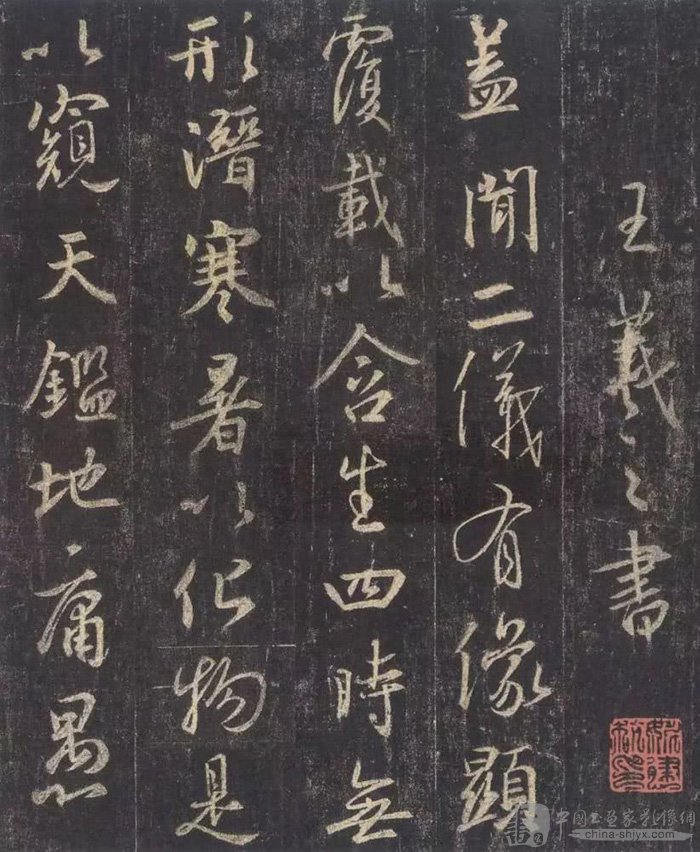 王羲之書
蓋聞二儀有像顯
覆載以含生四時無
形潛寒暑以化物是
以窺天鑑地庸愚
中国书画家影像網
china-shiyx.com